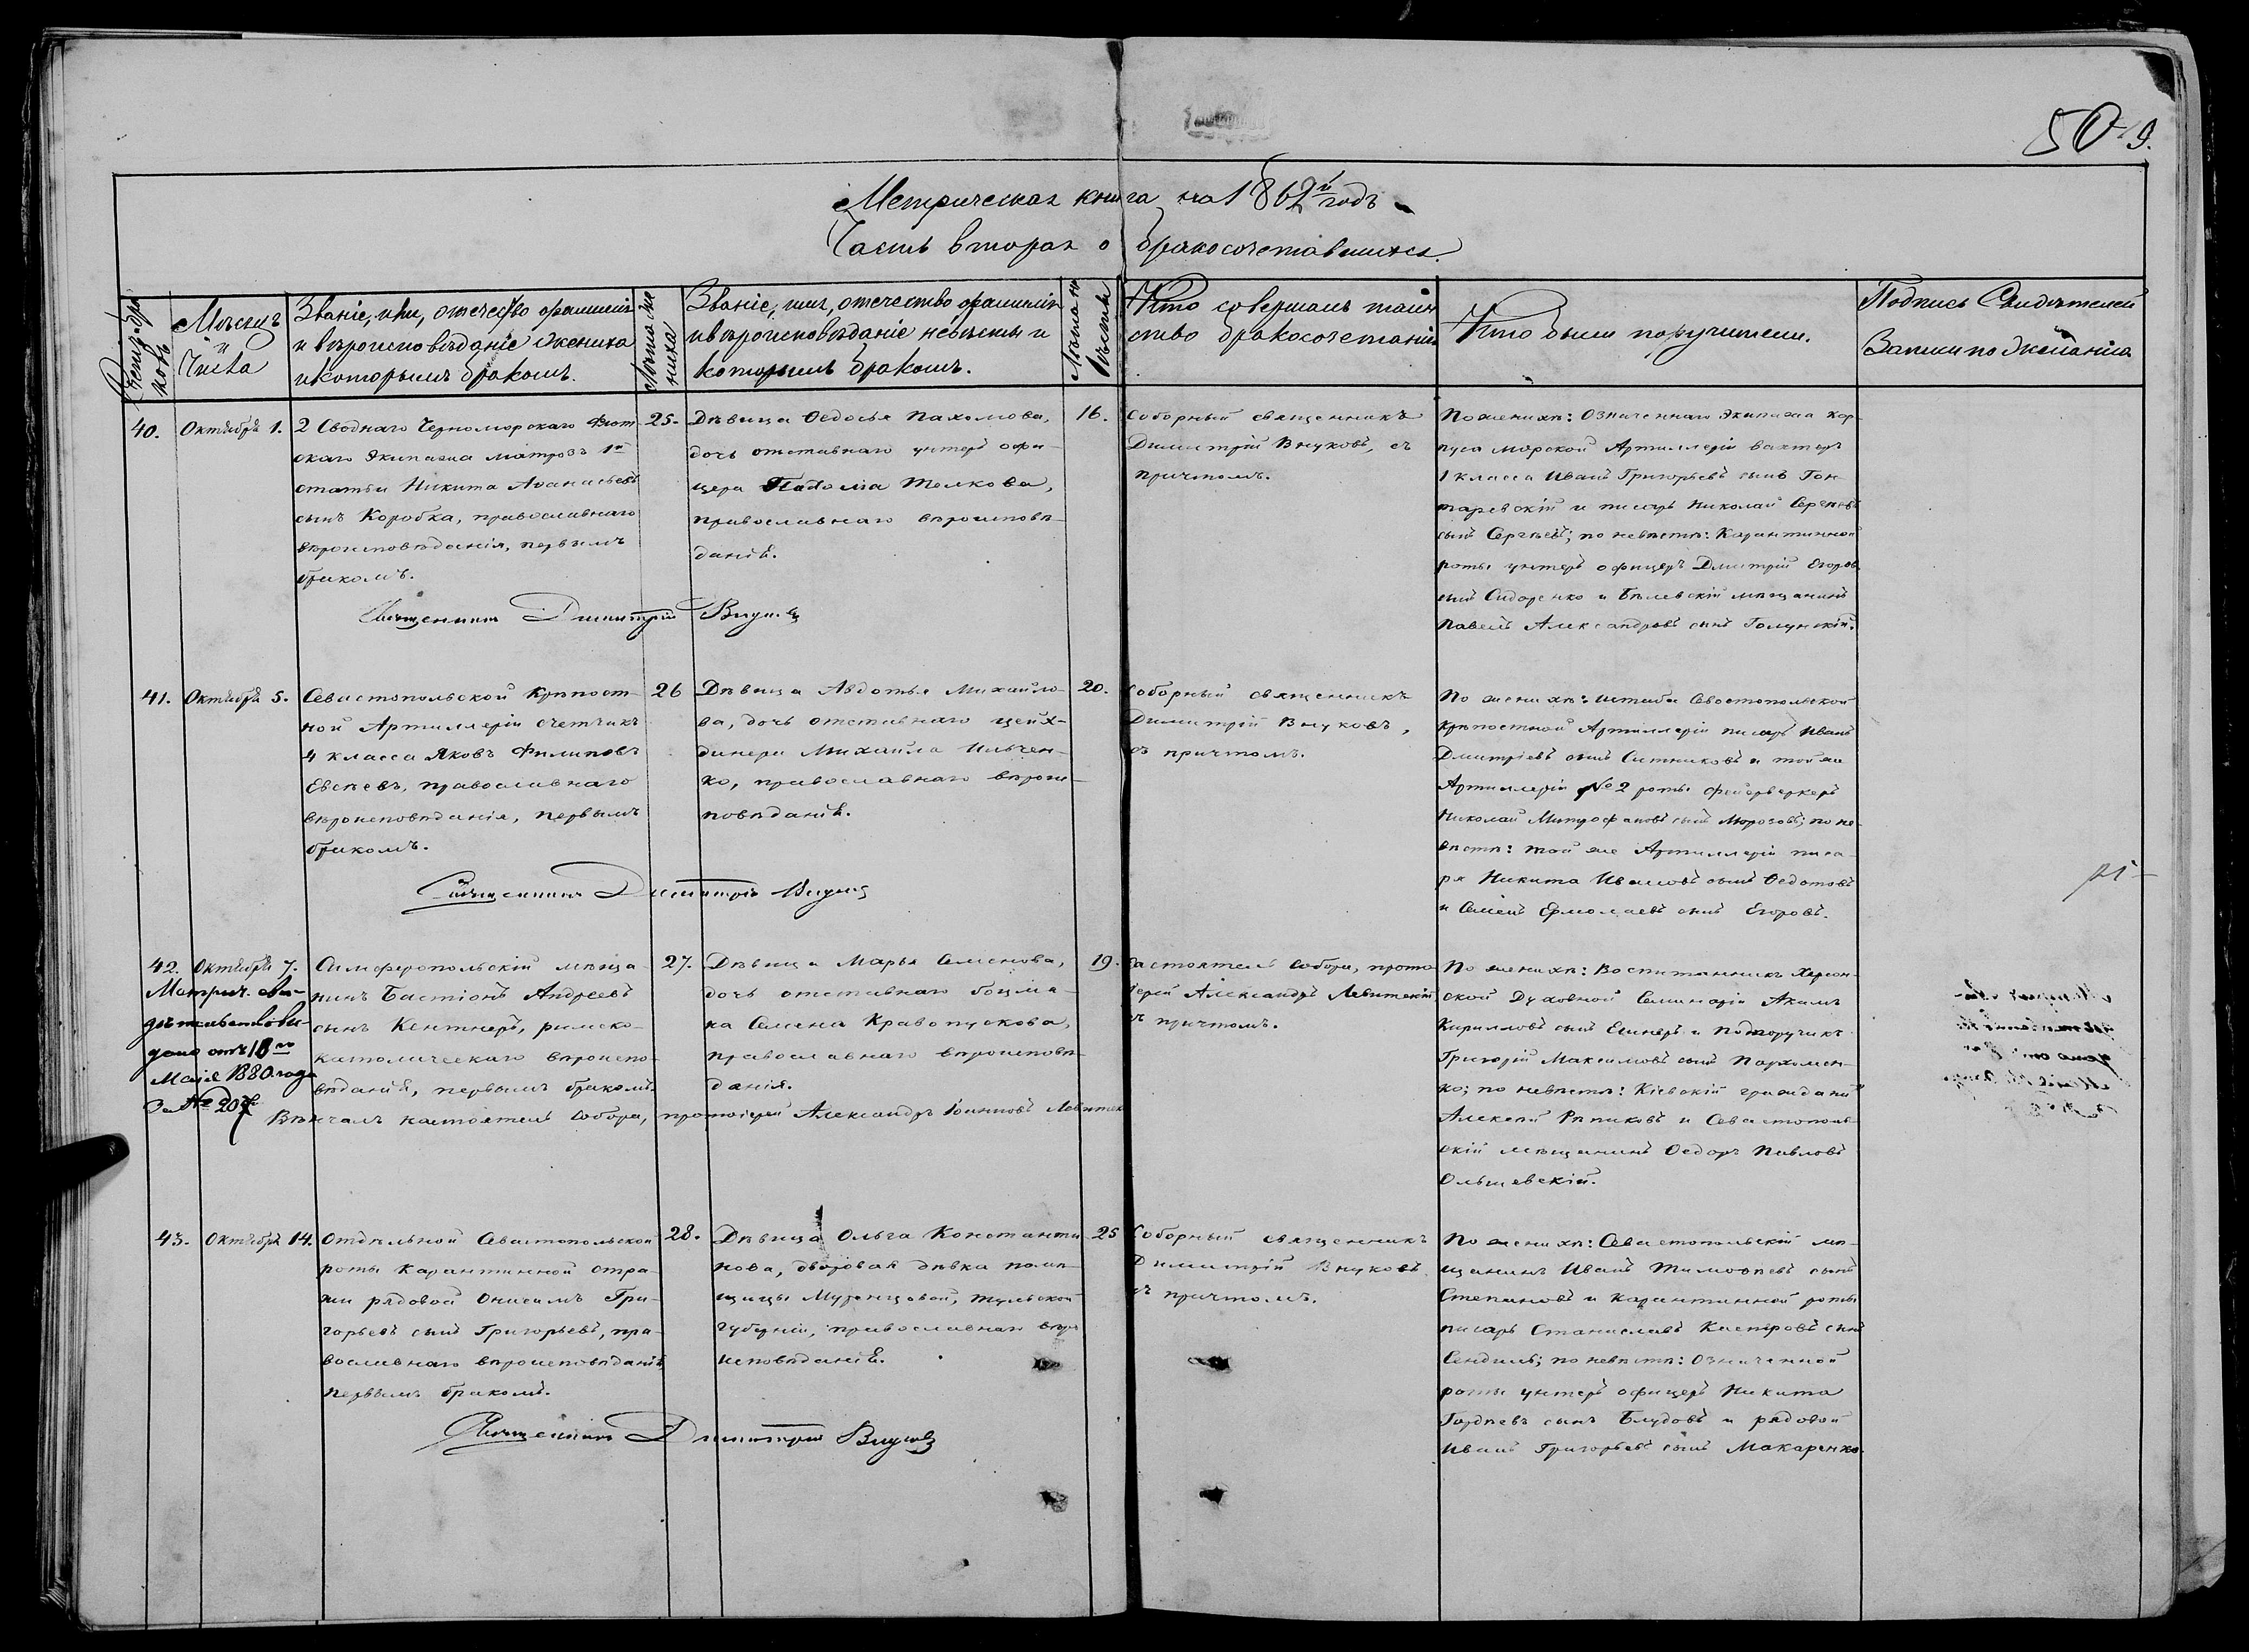 509.
Метрическая книга на 1862й годъ
Часть вторая о бракосочетавшихся.
Счетъ бра
ковъ
Мѣсяцъ
и
Числа
Званіе, имя, отечество фамилія
и вѣроисповѣданіе жениха
и которымъ бракомъ.
Лѣта же
ниха
Званіе, имя, отечество фамилія
и вѣроисповѣданіе невѣсты и
которымъ бракомъ.
Лѣта не
вѣсты
Кто совершалъ таин
ство бракосочетанія
Кто были поручители.
Подпись Свидѣтелей
Записи по желанію
40.
Октября 1.
2 Своднаго Черноморскаго Флот
скаго Экипажа матрозъ 1й
статьи Никита Аѳанасьевъ
сынъ Коробка, православнаго
вѣроисповѣданія, первымъ
бракомъ.
25.
Дѣвица Ѳедосья Пахомова,
дочь отставнаго унтеръ офи-
цера Пахома Толкова,
православнаго вѣроисповѣ-
данія.
16.
Соборный священникъ
Димитрій Внуковъ, съ
причтомъ.
По женихѣ: Означеннаго Экипажа Кор-
пуса морской Артиллеріи вахтеръ
1 класса Иванъ Григорьевъ сынъ Гон-
таревскій и писарь Николай Сергѣевъ
сынъ Сергѣевъ; по невѣстѣ: Карантинной
роты унтеръ офицеръ Дмитрій Егоровъ
сынъ Сидоренко и Бѣлевскій мѣщанинъ
Павелъ Александровъ сынъ Голунскій.
Священникъ Димитрій Внуковъ
41.
Октября 5.
Севастопольской Крѣпост-
ной Артиллеріи счетчикъ
4 класса Яковъ Филиповъ
Евсѣевъ, православнаго
вѣроисповѣданія, первымъ
бракомъ.
26
Дѣвица Авдотья Михайло-
ва, дочь отставнаго цейх-
динера Михаила Ильчен-
ко, православнаго вѣроис-
повѣданія.
20.
Соборный священникъ
Димитрій Внуковъ,
съ причтомъ.
По женихѣ: штаба Севастопольской
крѣпостной Артиллеріи писарь Иванъ
Дмитріевъ сынъ Ситниковъ и той же
Артиллеріи № 2 роты фейерверкеръ
Николай Митрофановъ сынъ Морозовъ; по не-
вѣстѣ: той же Артиллеріи писа-
ря Никита Ивановъ сынъ Ѳедотовъ
и Семенъ Ермолаевъ сынъ Егоровъ.
Священникъ Димитрій Внуковъ
42.
Октября 7.
Метрич. сви-
дѣтельство вы-
дано отъ 18го
Маія 1880 года
За № 207
Симферопольскій мѣща-
нинъ Бастіонъ Андреевъ
сынъ Кентнеръ, римско-
католическаго вѣроиспо-
вѣданія, первымъ бракомъ.
27.
Дѣвица Марья Семенова,
дочь отставнаго боцма-
на Семена Кравопускова,
православнаго вѣроисповѣ-
данія.
19.
Настоятель Собора, прото
іерей Александръ Левитскій
съ причтомъ.
По женихѣ: Воспитанникъ Херсон-
ской Духовной Семинаріи Акимъ
Кирилловъ сынъ Есинеръ и подпоручикъ
Григорій Максимовъ сынъ Пархомен-
ко; по невѣстѣ: Кіевскій гражданинъ
Алексѣй Рѣпиковъ и Севастополь-
скій мѣщанинъ Ѳедоръ Павловъ
Ольшевскій.
Вѣнчалъ настоятель Собора, протоіерей Александръ Іоанновъ Левитск
43.
Октября 14.
Отдѣльной Севастопольской
роты Карантинной стра-
жи рядовой Онисимъ Гри-
горьевъ сынъ Григорьевъ, пра-
вославнаго вѣроисповѣданія,
первымъ бракомъ.
28.
Дѣвица Ольга Константи
нова, дворовая дѣвка помѣ-
щицы Мурзицовой, Тульской
губерніи, православнаго вѣро
исповѣданія.
25
Соборный священникъ
Димитрій Внуковъ
съ причтомъ.
По женихѣ: Севастопольскій мѣ-
щанинъ Иванъ Тимоѳѣевъ сынъ
Степановъ и карантинной роты
писарь Станиславъ Каспровъ сынъ
Сендиль; по невѣстѣ: Означенной
роты унтеръ офицеръ Никита
Гордѣевъ сынъ Блудовъ и рядовой
Иванъ Григорьевъ сынъ Макаренко.
Священникъ Димитрій Внуковъ